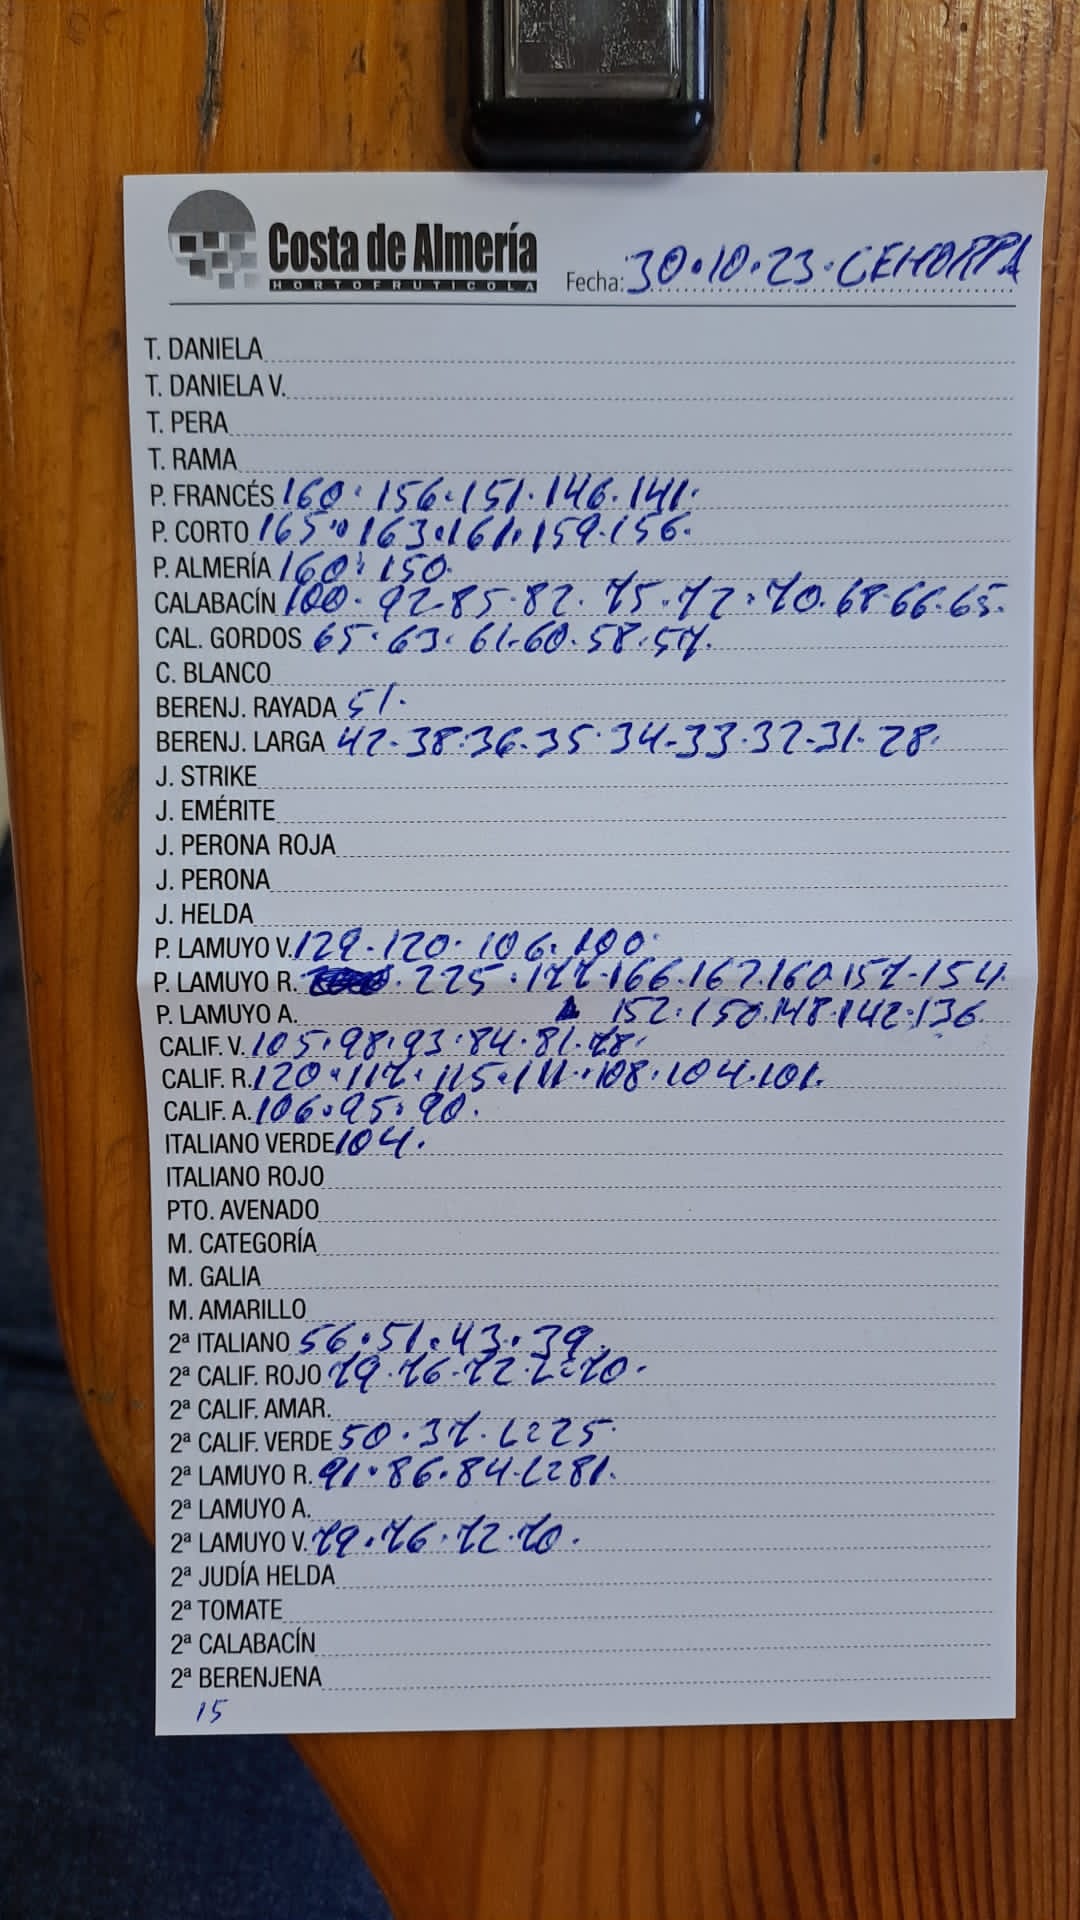 Costa de Almería
HORTOFRUTICOLA
Fecha: 30.10.23. CEHORPA
T. DANIELA
T. DANIELA V.
T. PERA
T. RAMA
P. FRANCÉS 160. 156. 151. 146. 141.
P. CORTO 165. 163. 161. 159. 156.
P. ALMERÍA 160. 150.
CALABACÍN 100. 92. 85. 82. 75. 72. 70. 68. 66. 65.
CAL. GORDOS 65. 63. 61. 60. 58. 57.
C. BLANCO
BERENJ. RAYADA 51.
BERENJ. LARGA 42. 38. 36. 35. 34. 33. 32. 31. 28.
J. STRIKE
J. EMÉRITE
J. PERONA ROJA
J. PERONA
J. HELDA
P. LAMUYO V. 129. 120. 106. 100.
P. LAMUYO R. . 225. 177. 166. 162. 160. 157. 154.
P. LAMUYO A. 152. 150. 148. 142. 136.
CALIF. V. 105. 98. 93. 84. 81. 78.
CALIF. R. 120. 117. 115. 111. 108. 104. 101.
CALIF. A. 106. 95. 90.
ITALIANO VERDE 104.
ITALIANO ROJO
PTO. AVENADO
M. CATEGORÍA
M. GALIA
M. AMARILLO
2ª ITALIANO 56. 51. 43. 39.
2ª CALIF. ROJO 79. 76. 72. 70.
2ª CALIF. AMAR.
2ª CALIF. VERDE 50. 37. 25.
2ª LAMUYO R. 91. 86. 84. 81.
2ª LAMUYO A.
2ª LAMUYO V. 79. 76. 72. 70.
2ª JUDÍA HELDA
2ª TOMATE
2ª CALABACÍN
2ª BERENJENA
15